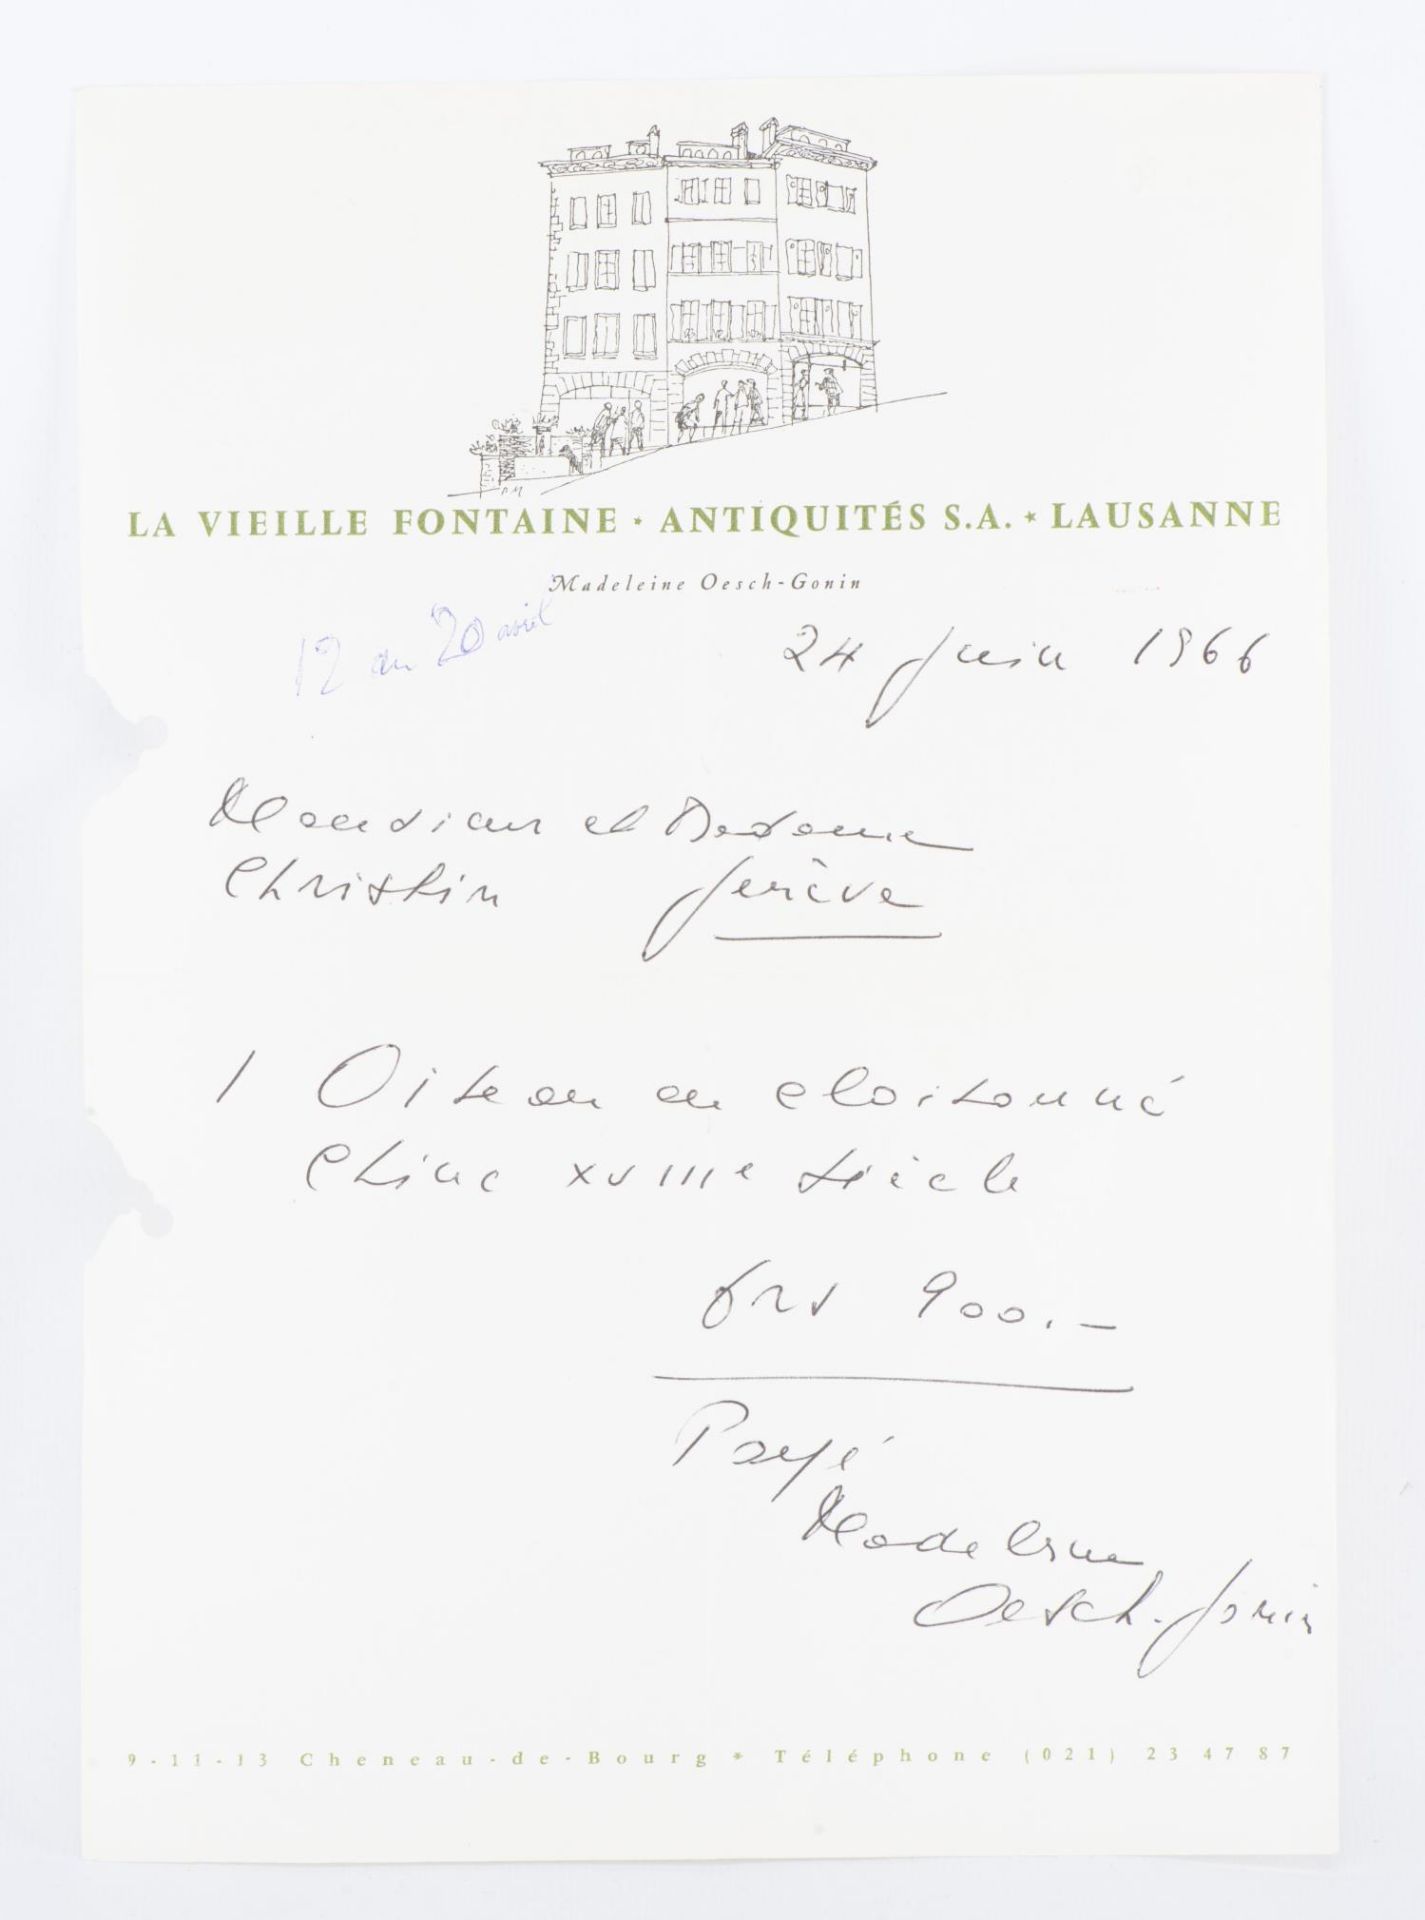 LA VIEILLE FONTAINE * ANTIQUITÉS S.A. * LAUSANNE
Madeleine Oesch-Gonin
12 au 20 avril
24 Juin 1966
Monsieur et Madame
Christin Genève
1 Oiseau en cloisonné
Chine XVIIIe siècle
frs 900.-
Payé
Madeleine
Oesch-Gonin
9-11-13 Cheneau-de-Bourg * Téléphone (021) 23 47 87